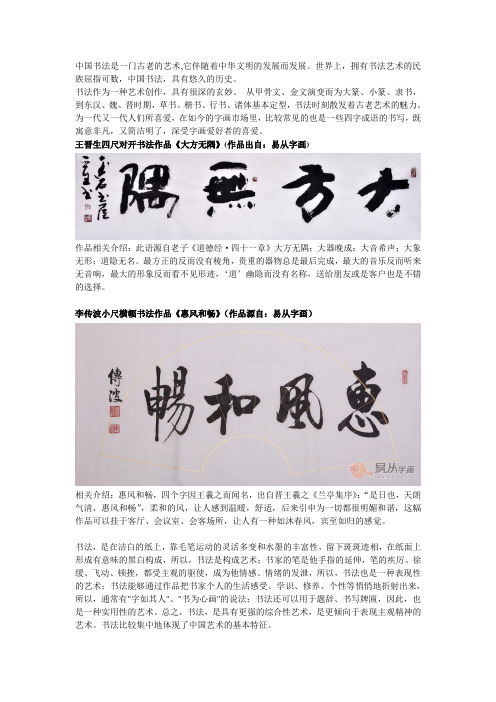 中国书法是一门古老的艺术,它伴随着中华文明的发展而发展。世界上，拥有书法艺术的民
族屈指可数，中国书法，具有悠久的历史。
书法作为一种艺术创作，具有很深的玄妙。 从甲骨文、金文演变而为大篆、小篆、隶书，
到东汉、魏、晋时期，草书、楷书、行书、诸体基本定型，书法时刻散发着古老艺术的魅力。
为一代又一代人们所喜爱，在如今的字画市场里，比较常见的也是一些四字成语的书写，既
寓意非凡，又简洁明了，深受字画爱好者的喜爱。
王晋生四尺对开书法作品《大方无隅》(作品出自：易从字画)
大方無隅
作品相关介绍：此语源自老子《道德经·四十一章》大方无隅；大器晚成；大音希声；大象
无形；道隐无名。最方正的反而没有棱角，贵重的器物总是最后完成，最大的音乐反而听来
无音响，最大的形象反而看不见形迹，‘道’幽隐而没有名称，送给朋友或是客户也是不错
的选择。
李传波小尺横幅书法作品《惠风和畅》（作品源自：易从字画）
惠風和暢
傳波
易从字画
相关介绍：惠风和畅，四个字因王羲之而闻名，出自晋王羲之《兰亭集序》：“是日也，天朗
气清，惠风和畅”，柔和的风，让人感到温暖，舒适，后来引申为一切都很明媚和谐，这幅
作品可以挂于客厅、会议室、会客场所，让人有一种如沐春风，宾至如归的感觉。
书法，是在洁白的纸上，靠毛笔运动的灵活多变和水墨的丰富性，留下斑斑迹相，在纸面上
形成有意味的黑白构成，所以，书法是构成艺术；书家的笔是他手指的延伸，笔的疾厉、徐
缓、飞动、顿挫，都受主观的驱使，成为他情感、情绪的发泄，所以，书法也是一种表现性
的艺术；书法能够通过作品把书家个人的生活感受、学识、修养、个性等悄悄地折射出来，
所以，通常有"字如其人"、"书为心画"的说法；书法还可以用于题辞、书写牌匾，因此，也
是一种实用性的艺术。总之，书法，是具有更强的综合性艺术，是更倾向于表现主观精神的
艺术。书法比较集中地体现了中国艺术的基本特征。